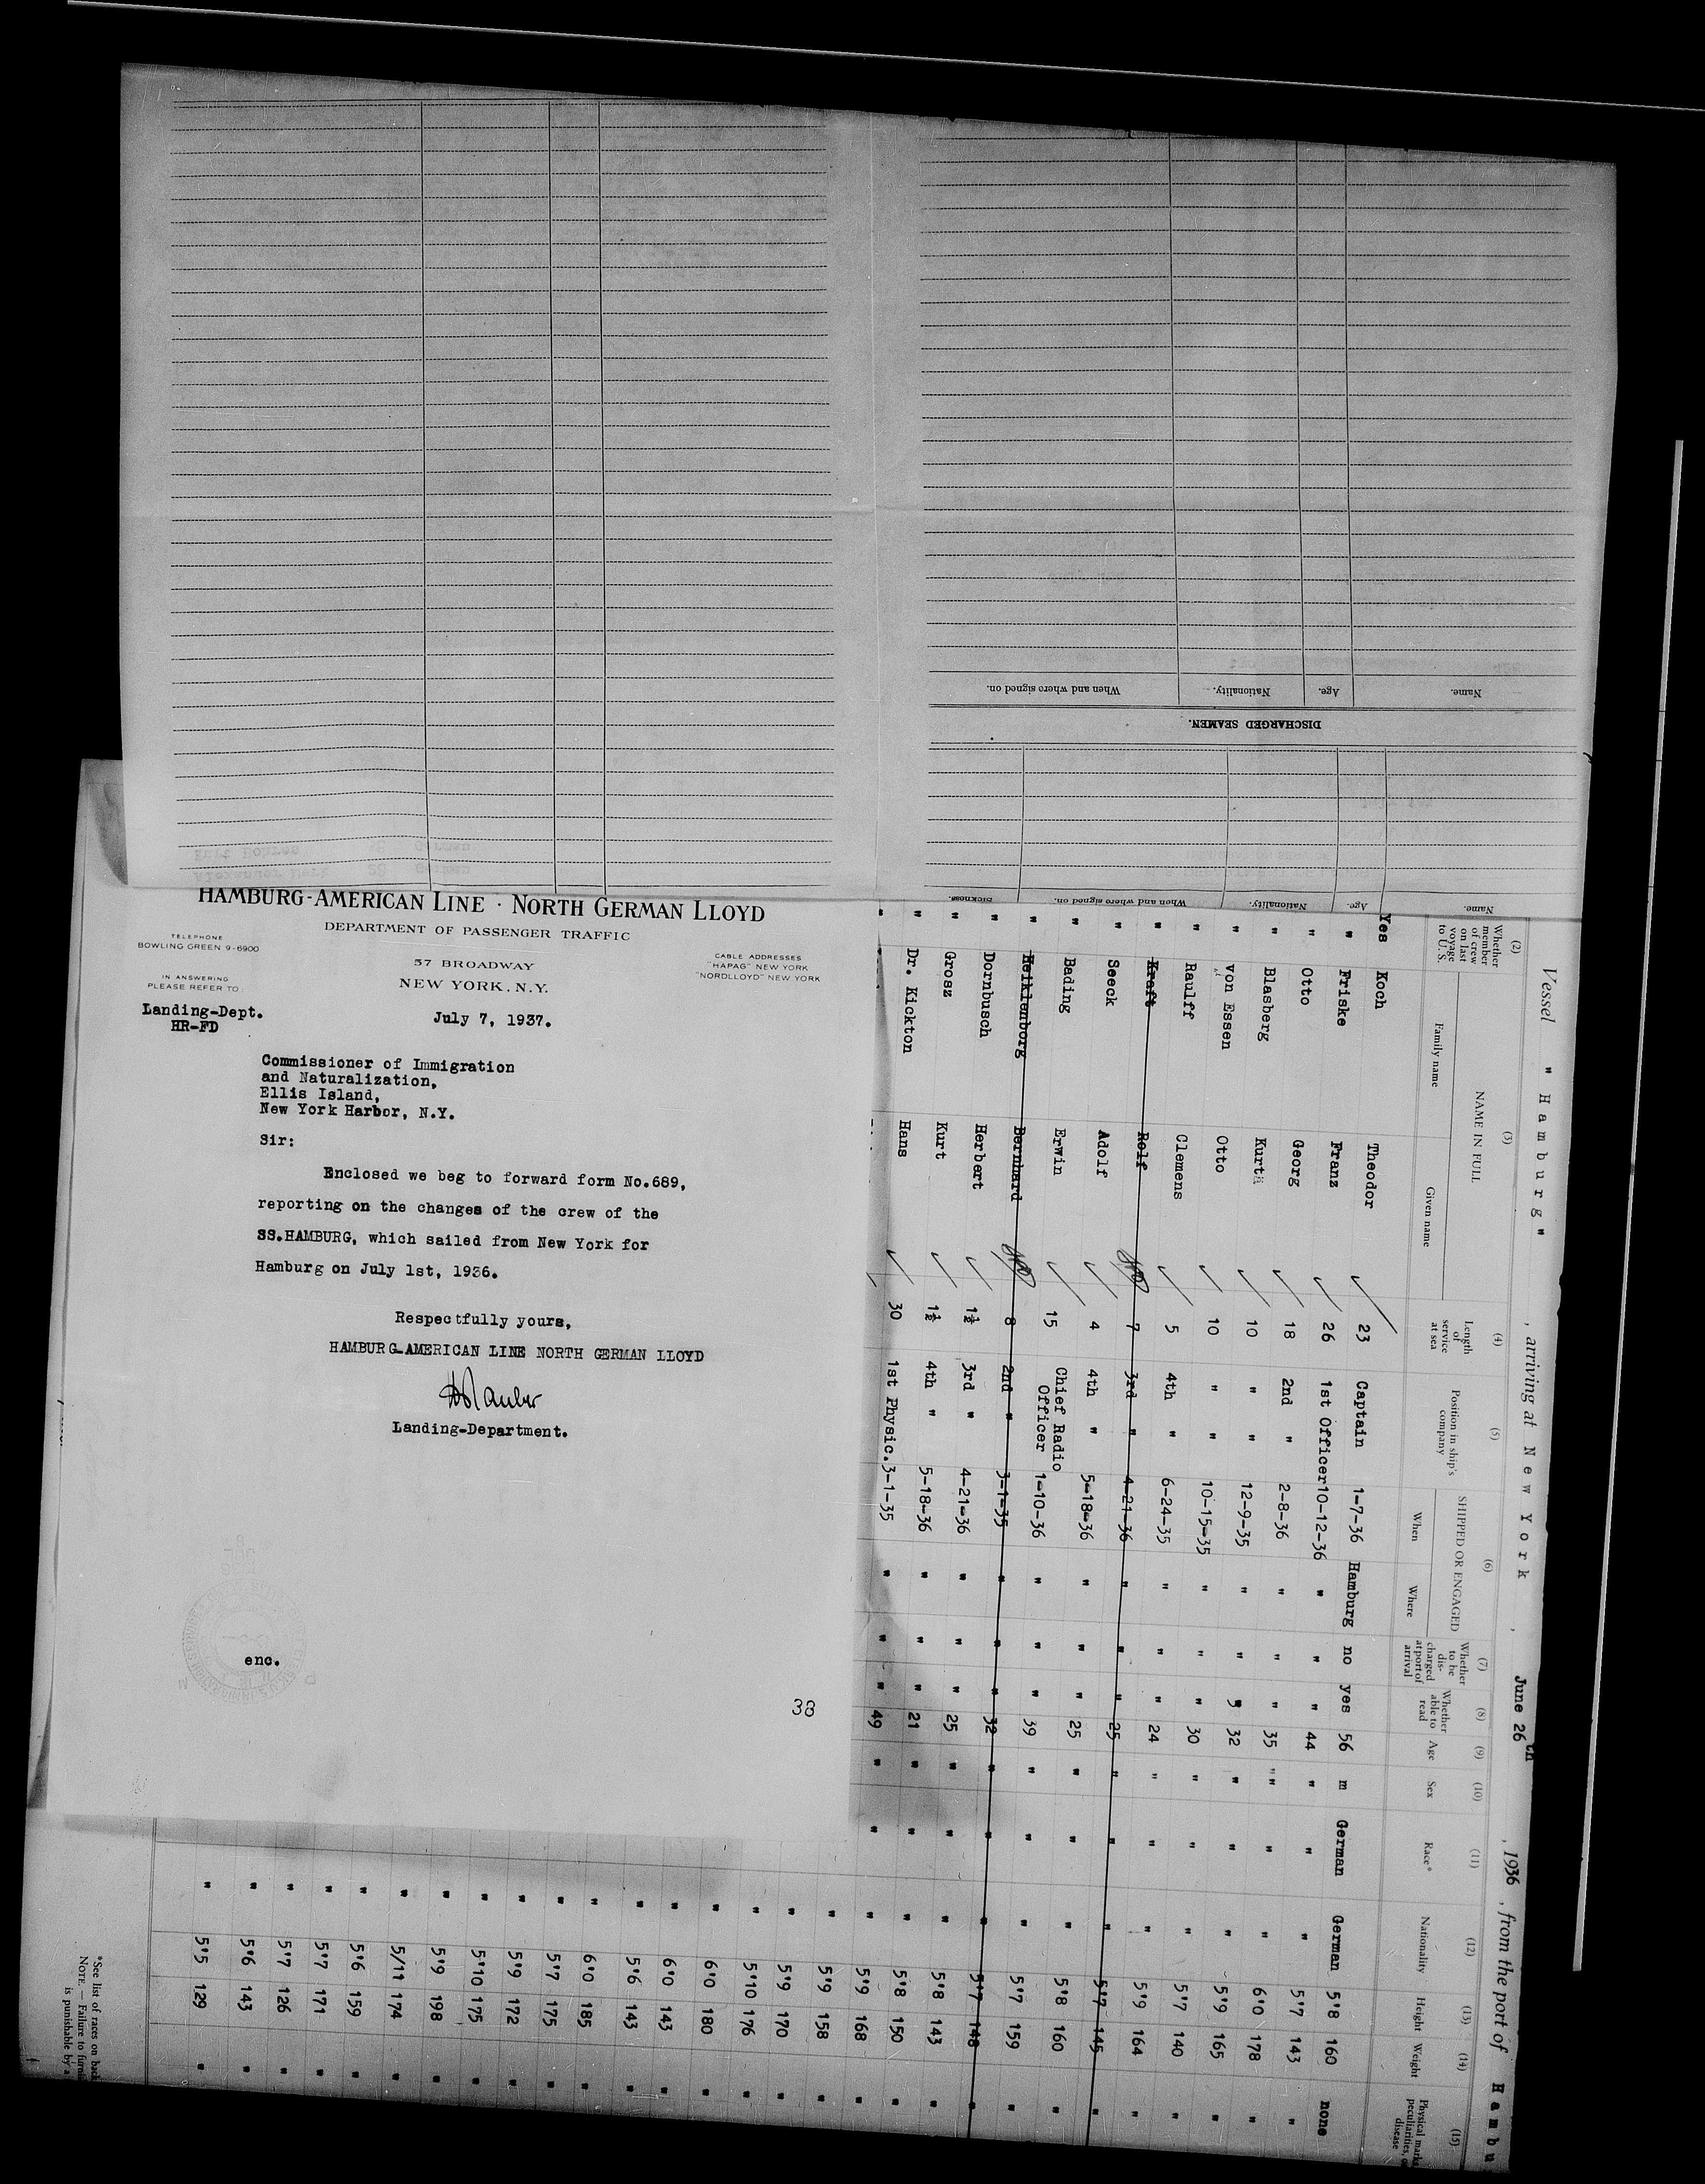 Name. Age. Nationality. When and where signed on.
DISCHARGED SEAMEN.
Name. Age. Nationality. When and where signed on. Sickness.
HAMBURG-AMERICAN LINE · NORTH GERMAN LLOYD
DEPARTMENT OF PASSENGER TRAFFIC
TELEPHONE
BOWLING GREEN 9-6900
57 BROADWAY
NEW YORK, N.Y.
CABLE ADDRESSES
"HAPAG" NEW YORK
"NORDLLOYD" NEW YORK
IN ANSWERING
PLEASE REFER TO:
Landing-Dept.
HR-FD
July 7, 1937.
Commissioner of Immigration
and Naturalization,
Ellis Island,
New York Harbor, N.Y.
Sir:
Enclosed we beg to forward form No.689,
reporting on the changes of the crew of the
SS.HAMBURG, which sailed from New York for
Hamburg on July 1st, 1936.
Respectfully yours,
HAMBURG-AMERICAN LINE NORTH GERMAN LLOYD
Landing-Department.
enc.
38
Vessel " Hamburg" , arriving at New York , June 26th , 1936 , from the port of Hambu
(2) (3) (4) (5) (6) (7) (8) (9) (10) (11) (12) (13) (14) (15)
Whether member of crew on last voyage to U.S.
NAME IN FULL
Family name Given name
Length of service at sea
Position in ship's company
SHIPPED OR ENGAGED
When Where
Whether to be discharged at port of arrival
Whether able to read
Age
Sex
Race*
Nationality
Height
Weight
Physical marks, peculiarities, or disease
Yes Koch Theodor 23 Captain 1-7-36 Hamburg no yes 56 m German German 5'8 160 none
" Friske Franz 26 1st Officer 10-12-36 " " " 44 " " " 5'7 143 "
" Otto Georg 18 2nd " 2-8-36 " " " 35 " " " 6'0 178 "
" Blasberg Kurt 10 " " 12-9-35 " " " 32 " " " 5'9 165 "
" von Essen Otto 10 " " 10-15-35 " " " 30 " " " 5'7 140 "
" Raulff Clemens 5 4th " 6-24-35 " " " 24 " " " 5'9 164 "
" Kraft Rolf 7 3rd " 4-21-36 " " " 25 " " " 5'7 145 "
" Seeck Adolf 4 4th " 5-18-36 " " " 25 " " " 5'8 160 "
" Bading Erwin 15 Chief Radio Officer 1-10-36 " " " 39 " " " 5'7 159 "
" Heiklenborg Bernhard 8 2nd " 3-1-35 " " " 32 " " " 5'7 148 "
" Dornbusch Herbert 1½ 3rd " 4-21-36 " " " 25 " " " 5'8 143 "
" Grosz Kurt 1½ 4th " 5-18-36 " " " 21 " " " 5'8 150 "
" Dr. Kickton Hans 30 1st Physic. 3-1-35 " " " 49 " " " 5'9 168 "
" 5'9 158 "
" 5'9 170 "
" 5'10 176 "
" 6'0 180 "
" 6'0 143 "
" 5'6 143 "
" 6'0 185 "
" 5'7 175 "
" 5'9 172 "
" 5'10 175 "
" 5'9 198 "
" 5/11 174 "
" 5'6 159 "
" 5'7 171 "
" 5'7 126 "
" 5'6 143 "
" 5'5 129 "
*See list of races on back
NOTE.—Failure to furni
is punishable by a